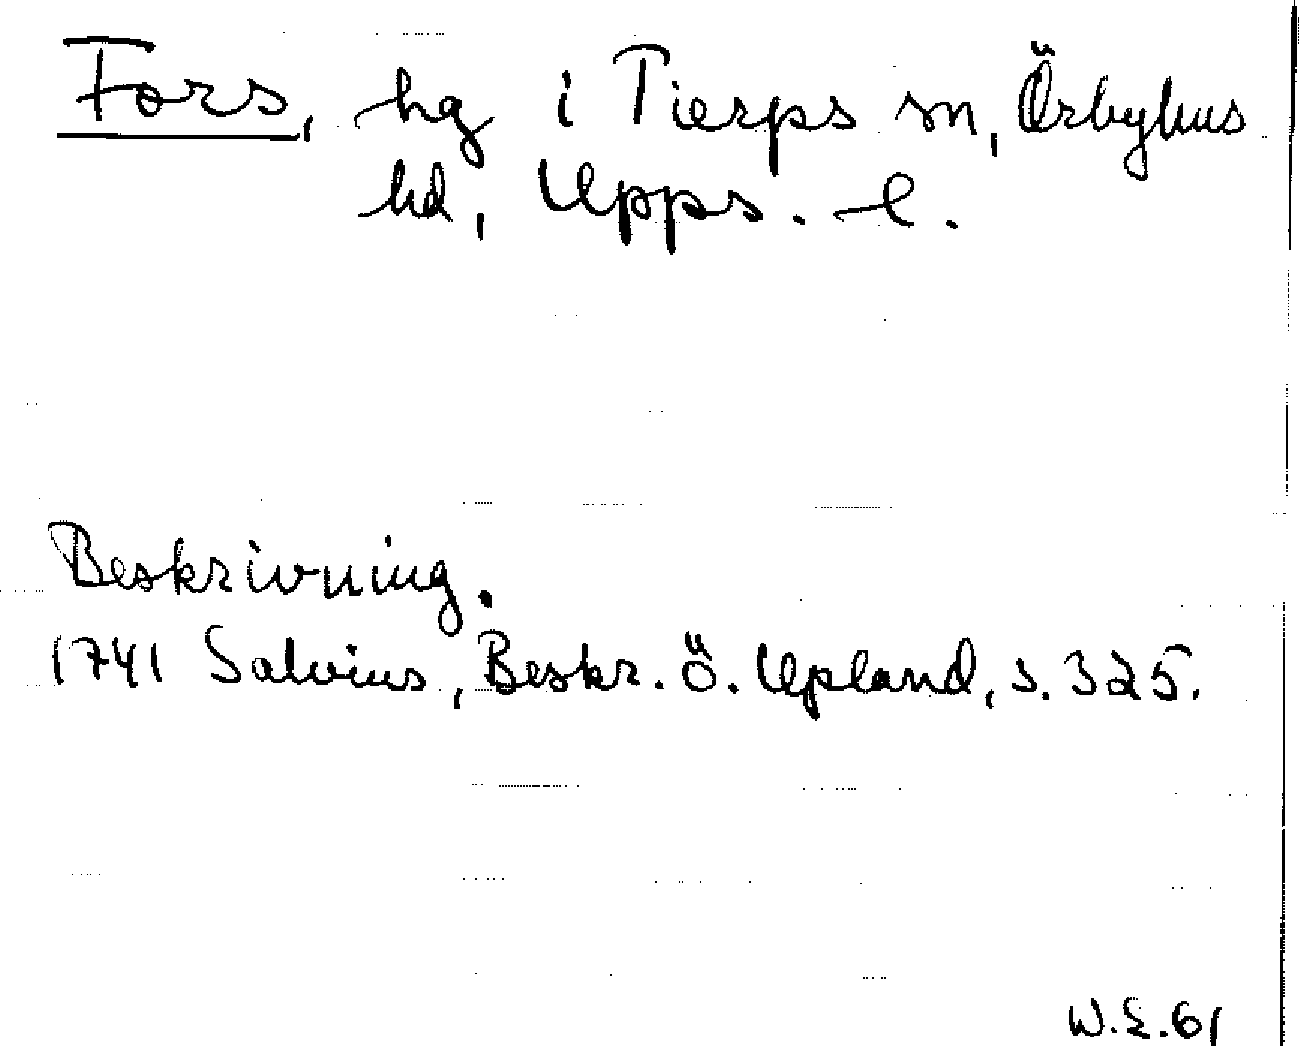 Fors, hg i Tierps sn, Örbyhus
hd, Upps. l.
Beskrivning.
1741 Salvius, Beskr. ö. Upland, s. 325.
W.E.61